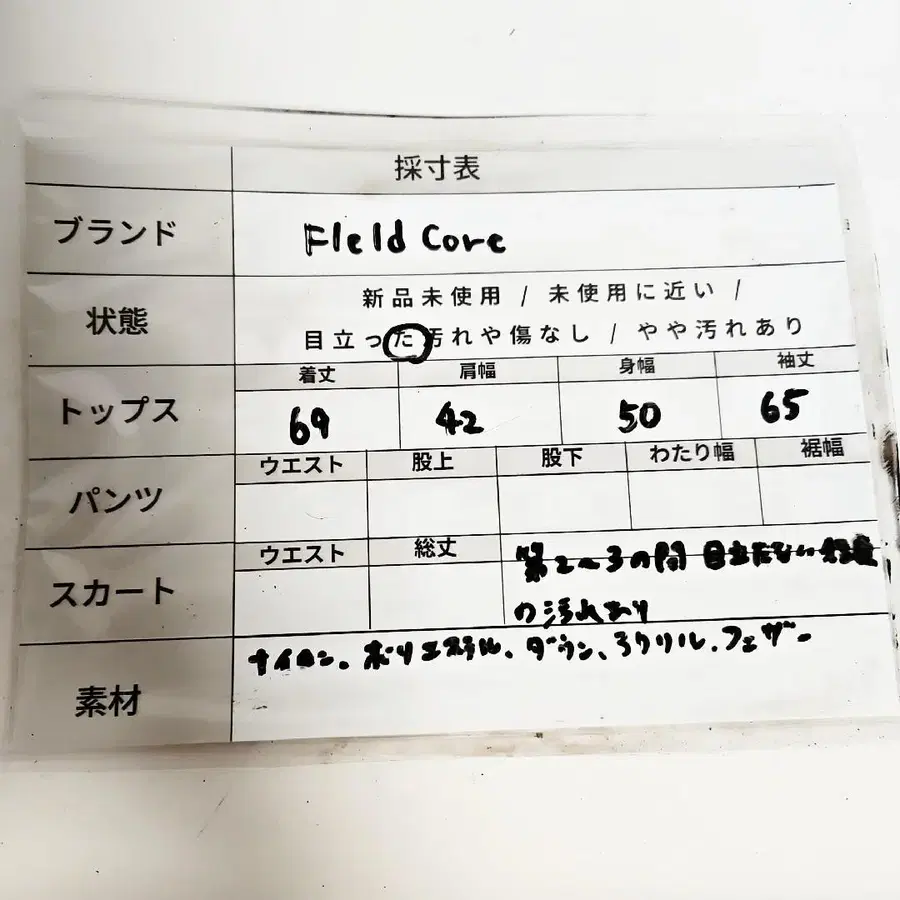 採寸表
ブランド Fleld Core
状態 新品未使用 / 未使用に近い /
目立った汚れや傷なし / やや汚れあり
トップス 着丈 肩幅 身幅 袖丈
69 42 50 65
パンツ ウエスト 股上 股下 わたり幅 裾幅
スカート ウエスト 総丈
第2〜3の間 目立たない
の汚れあり
素材 ナイロン、ポリエステル、ダウン、アクリル、フェザー